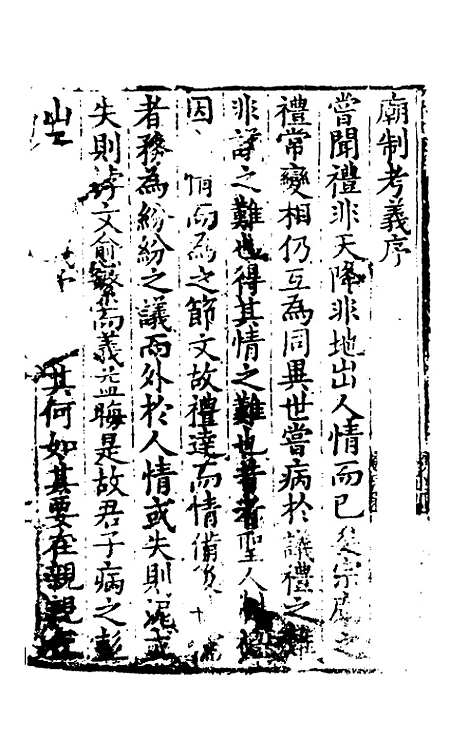 廟制考義序
嘗聞禮非天降非地出人情而已 宗廟之
禮常變相仍互為同異世嘗病於議禮之難
非議之難也得其情之難也昔者聖人
因 情而為之節文故禮達而情備後
者務為紛紛之議而外於人情或失則泥或
失則 文愈繁而義益晦是故君子病之彭
山 其何如其要在親親